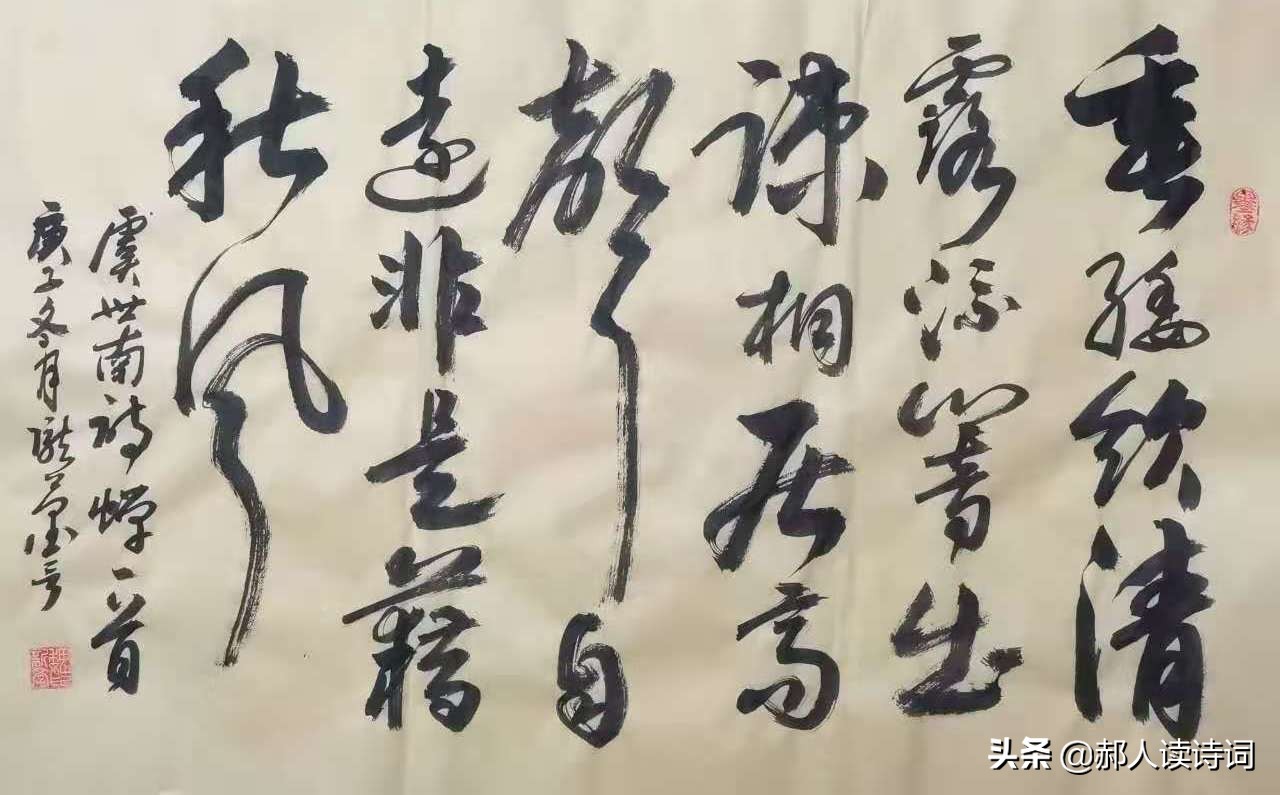 垂緌飲清
露流響出
踈桐居高
聲自
遠非是藉
秋風
虞世南詩蟬一首
庚子冬月
头条 @郝人读诗词